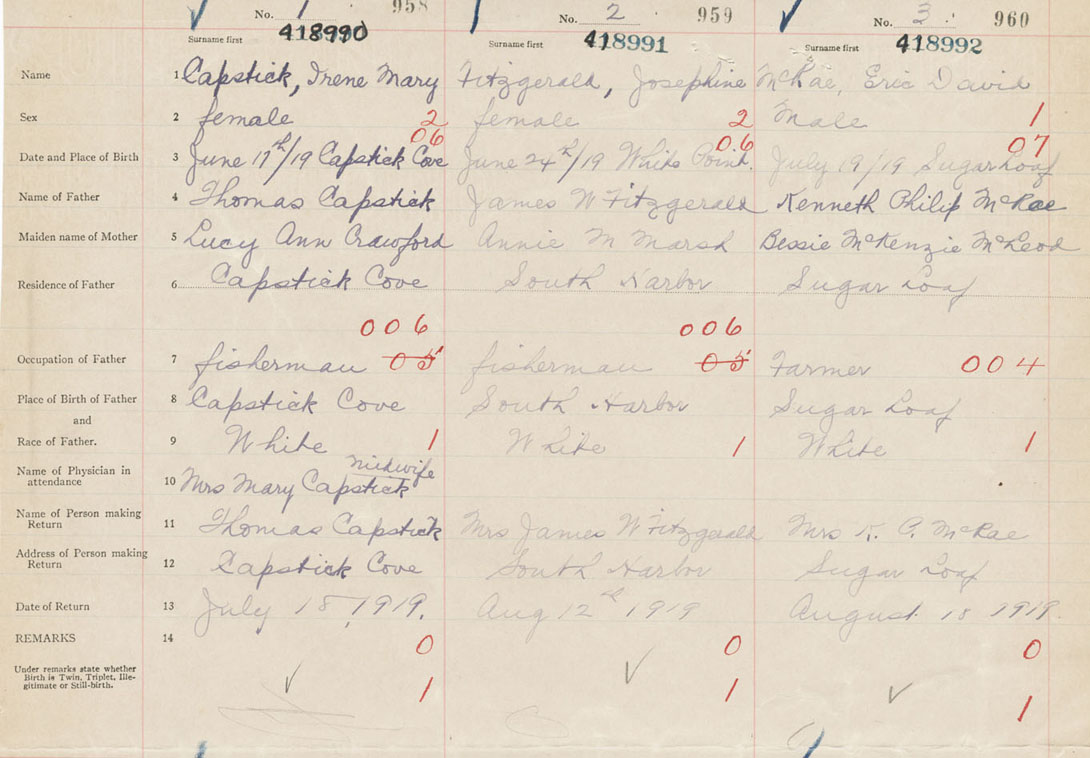 No. 1 958 No. 2 959 No. 3 960
Surname first 418990 Surname first 418991 Surname first 418992
Name 1 Capstick, Irene Mary Fitzgerald, Josephine McRae, Eric David
Sex 2 female 2 female 2 Male 1
06 06 07
Date and Place of Birth 3 June 17th/19 Capstick Cove June 24th/19 Whits Point. July 19/19 Sugar Loaf
Name of Father 4 Thomas Capstick James W Fitzgerald Kenneth Philip McRae
Maiden name of Mother 5 Lucy Ann Crawford Annie M Marsh Bessie McKenzie McLeod
Residence of Father 6 Capstick Cove South Harbor Sugar Loaf
006 006
Occupation of Father 7 fisherman 05 fisherman 05 Farmer 004
Place of Birth of Father 8 Capstick Cove South Harbor Sugar Loaf
and
Race of Father. 9 White 1 White 1 White 1
Name of Physician in attendance 10 Mrs Mary Capstick midwife
Name of Person making Return 11 Thomas Capstick Mrs James W Fitzgerald Mrs K. P. McRae
Address of Person making Return 12 Capstick Cove South Harbor Sugar Loaf
Date of Return 13 July 18, 1919. Aug 12th 1919 August 18 1919.
REMARKS 14 0 0 0
Under remarks state whether
Birth is Twin, Triplet, Ille-
gitimate or Still-birth.
1 1 1